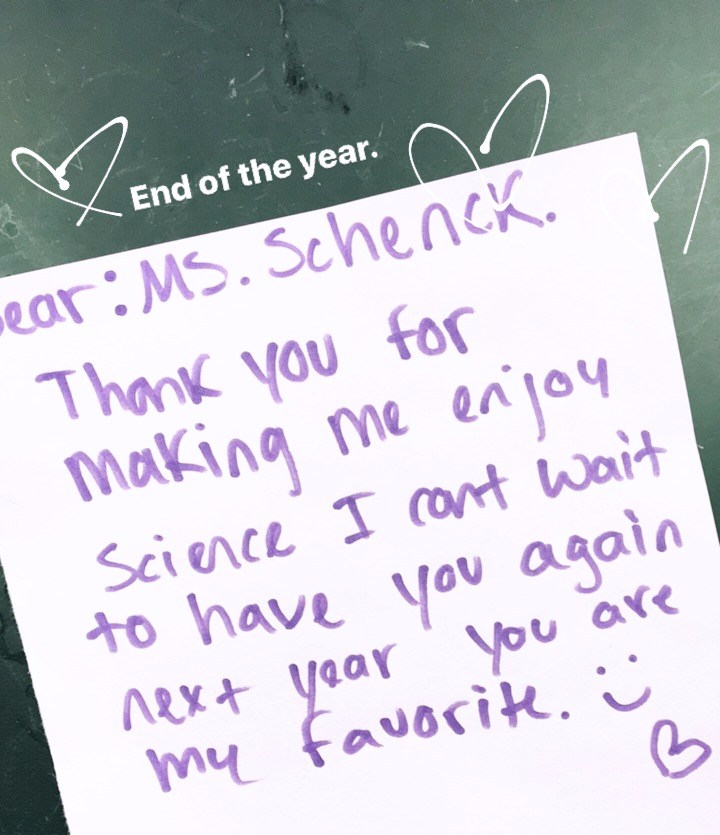 End of the year.
ear: Ms. Schenck.
Thank you for
making me enjoy
Science I cant wait
to have you again
next year you are
my favorite.